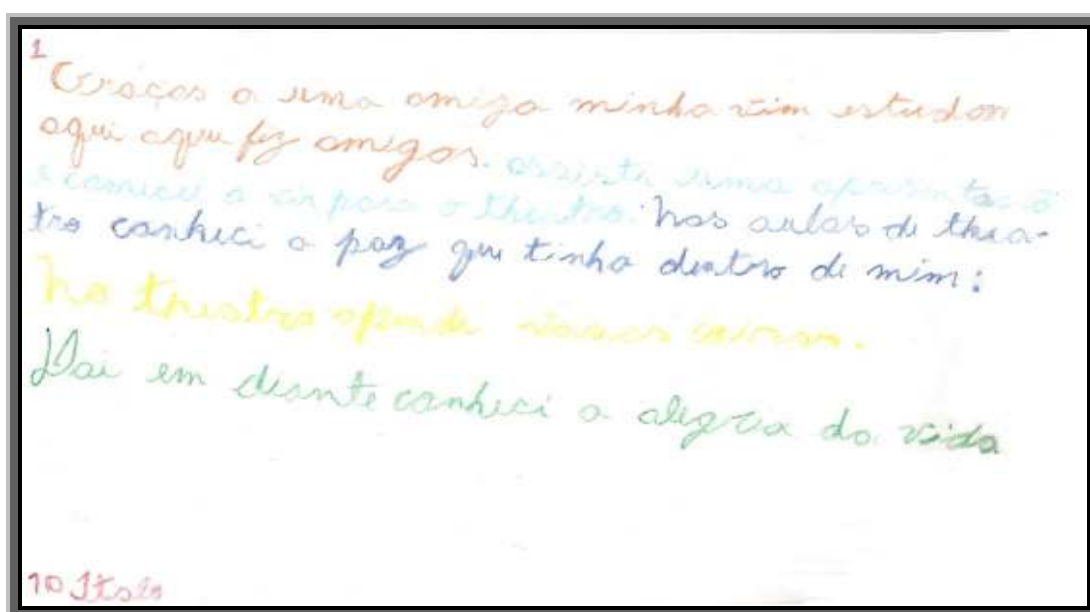 1
Graças a uma amiga minha vim estudar
aqui aqui fiz amigos. assisti uma apresentação
e comecei a vir para o theatro. Nas aulas de thea-
tro conheci a paz que tinha dentro de mim:
No theatro aprendi várias coisas.
Dai em diante conheci a alegria da vida
10 Italo